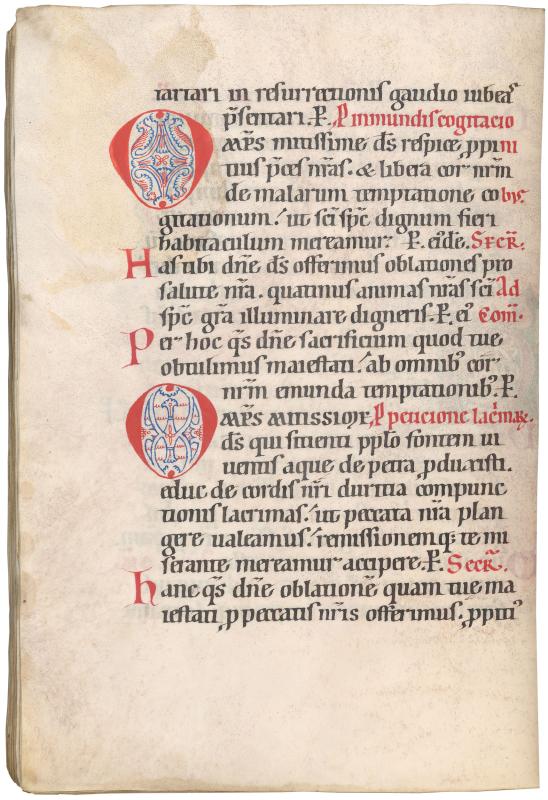 tartari in resurrectionis gaudio iubeaˢ
p̄sentari. P̱. P inmundis cogitacio
OMP̄S mitissime d̄s respice ꝓpi ni
tius p̄ces n̄ras. & libera cor n̄rm
de malarum temptatione co bꝰ.
gitationum. ut s̄ci sp̄c dignum fieri
habitaculum mereamur. P̱. eide. Secr̄.
Has tibi dn̄e d̄s offerimus oblationes pro
salute n̄ra. quatinus animas n̄ras s̄ci Ad
sp̄c gr̄a illuminare digneris. P̱. eiꝰ Com.
Per hoc q̄s dn̄e sacrificium quod tue
obtulimus maiestati. ab omnibꝰ cor
n̄rm emunda temptationibꝰ. P̱.
OMP̄S MITISSIME, P peticione lac̄maꝝ.
d̄s qui sitienti pp̄lo fontem ui
uentis aque de petra ꝓduxisti.
educ de cordis n̄ri duritia compunc
tionis lacrimas. ut peccata n̄ra plan
gere ualeamus. remissionemq; te mi
serante mereamur accipere. P̱. Secr̄.
hanc q̄s dn̄e oblationē quam tue ma
iestati ꝓ peccatis n̄ris offerimus. ꝓpitiꝰ